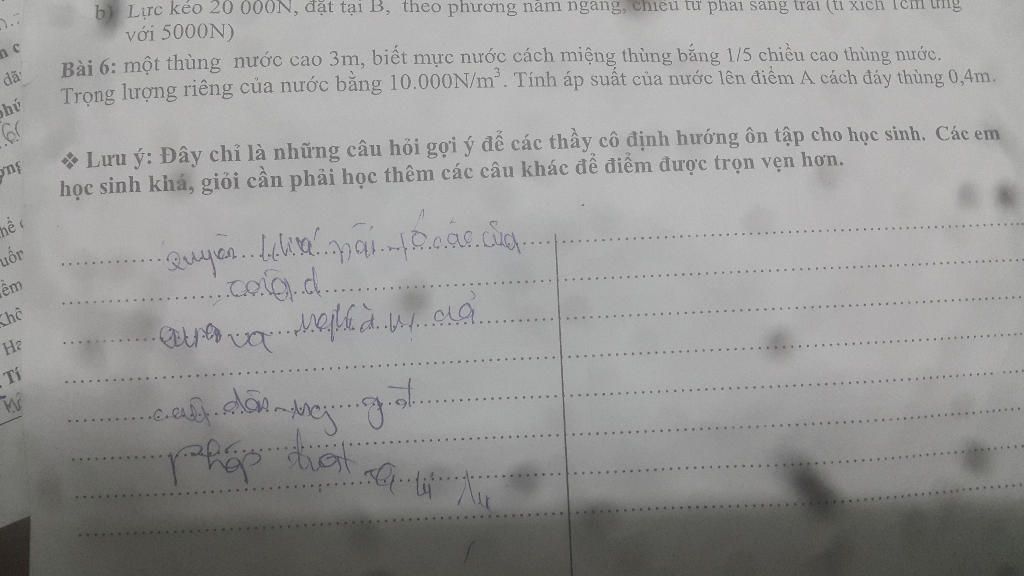 b) Lực kéo 20 000N, đặt tại B, theo phương nằm ngang, chiều từ phải sang trái (tỉ xích 1cm ứng
với 5000N)
Bài 6: một thùng nước cao 3m, biết mực nước cách miệng thùng bằng 1/5 chiều cao thùng nước.
Trọng lượng riêng của nước bằng 10.000N/m³. Tính áp suất của nước lên điểm A cách đáy thùng 0,4m.
❖ Lưu ý: Đây chỉ là những câu hỏi gợi ý để các thầy cô định hướng ôn tập cho học sinh. Các em
học sinh khá, giỏi cần phải học thêm các câu khác để điểm được trọn vẹn hơn.
quyền khiếu nại tố cáo của
công d
quyền và nghĩa vụ của
công dân
pháp luật